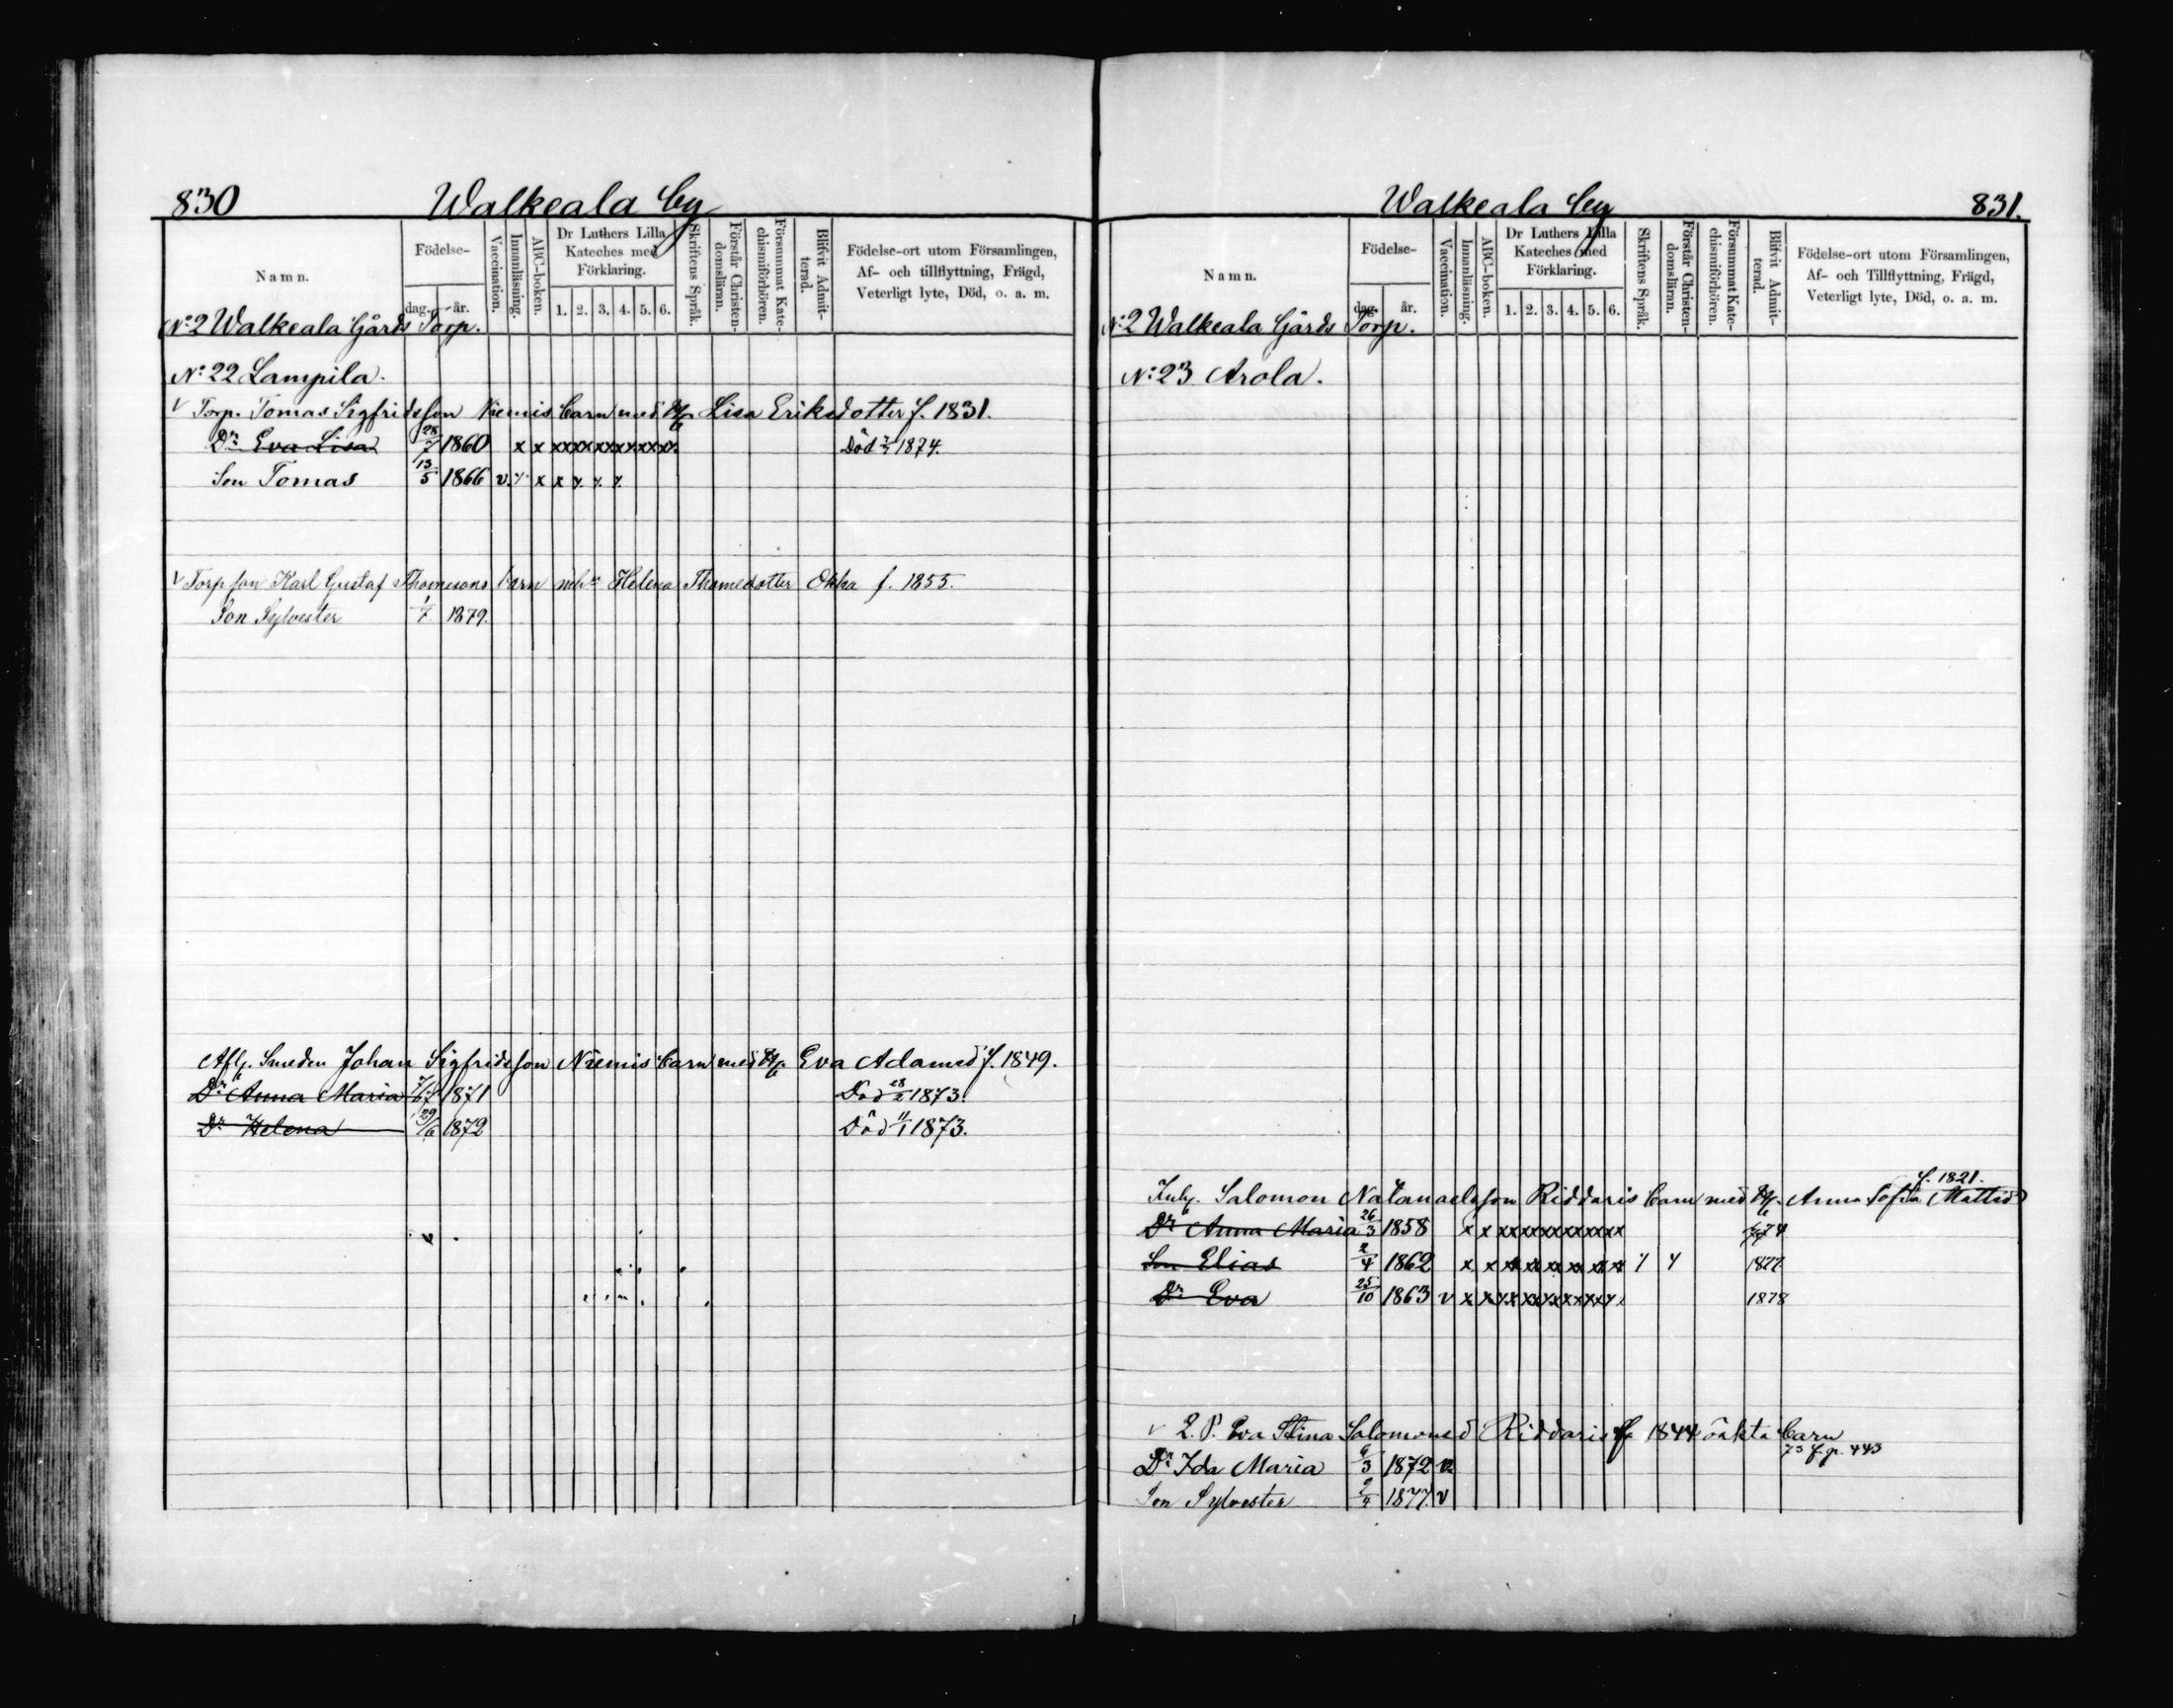 830 Walkeala by
Namn. Födelse- dag. år. Vaccination. Innanläsning. ABC-boken. Dr Luthers Lilla Kateches med Förklaring. 1. 2. 3. 4. 5. 6. Skriftens Språk. Förstår Christendomsläran. Försummat Katechismiförhören. Blifvit Admitterad. Födelse-ort utom Församlingen, Af- och tillflyttning, Frägd, Veterligt lyte, Död, o. a. m.
No 2 Walkeala Gårds Torp.
No 22 Lampila.
v Torp. Tomas Sigfridsson Niemis barn med Lisa Eriksdotter f. 1831.
Dr Eva Lisa 28/7 1860 x x xxxxxxxxxxxx Död 1874.
Son Tomas 13/5 1866 v. x x x x x x
v Torp son Karl Gustaf Thomesons barn Helena Thomedotter Okka f. 1855.
Son Sylvester 1/7 1879.
Afl. Smeden Johan Sigfridsson Niemis barn med Eva Adamsd f. 1849.
Dr Anna Maria 1871 Död 28/2 1873.
Dr Helena 29/6 1872 Död 11/1 1873.
Walkeala by 831.
Namn. Födelse- dag. år. Vaccination. Innanläsning. ABC-boken. Dr Luthers Lilla Kateches med Förklaring. 1. 2. 3. 4. 5. 6. Skriftens Språk. Förstår Christendomsläran. Försummat Katechismiförhören. Blifvit Admitterad. Födelse-ort utom Församlingen, Af- och Tillflyttning, Frägd, Veterligt lyte, Död, o. a. m.
No 2 Walkeala Gårds Torp.
No 23 Arola.
f. 1821.
Inh. Salomon Natanaelsson Riddaris barn med Anna Sofia Mattsd
Dr Anna Maria 26/3 1858 x x xxxxxxxxxxxx
Son Elias 2/4 1862 x x xxxxxxxxxxxx 1877
Dr Eva 25/10 1863 v x x xxxxxxxxxxx 1878
v Q. P. Eva Stina Salomonsd Riddaris f 1844 oäkta barn
73 f. p. 443
Dr Ida Maria 6/3 1872 v
Son Sylvester 2/4 1877. v